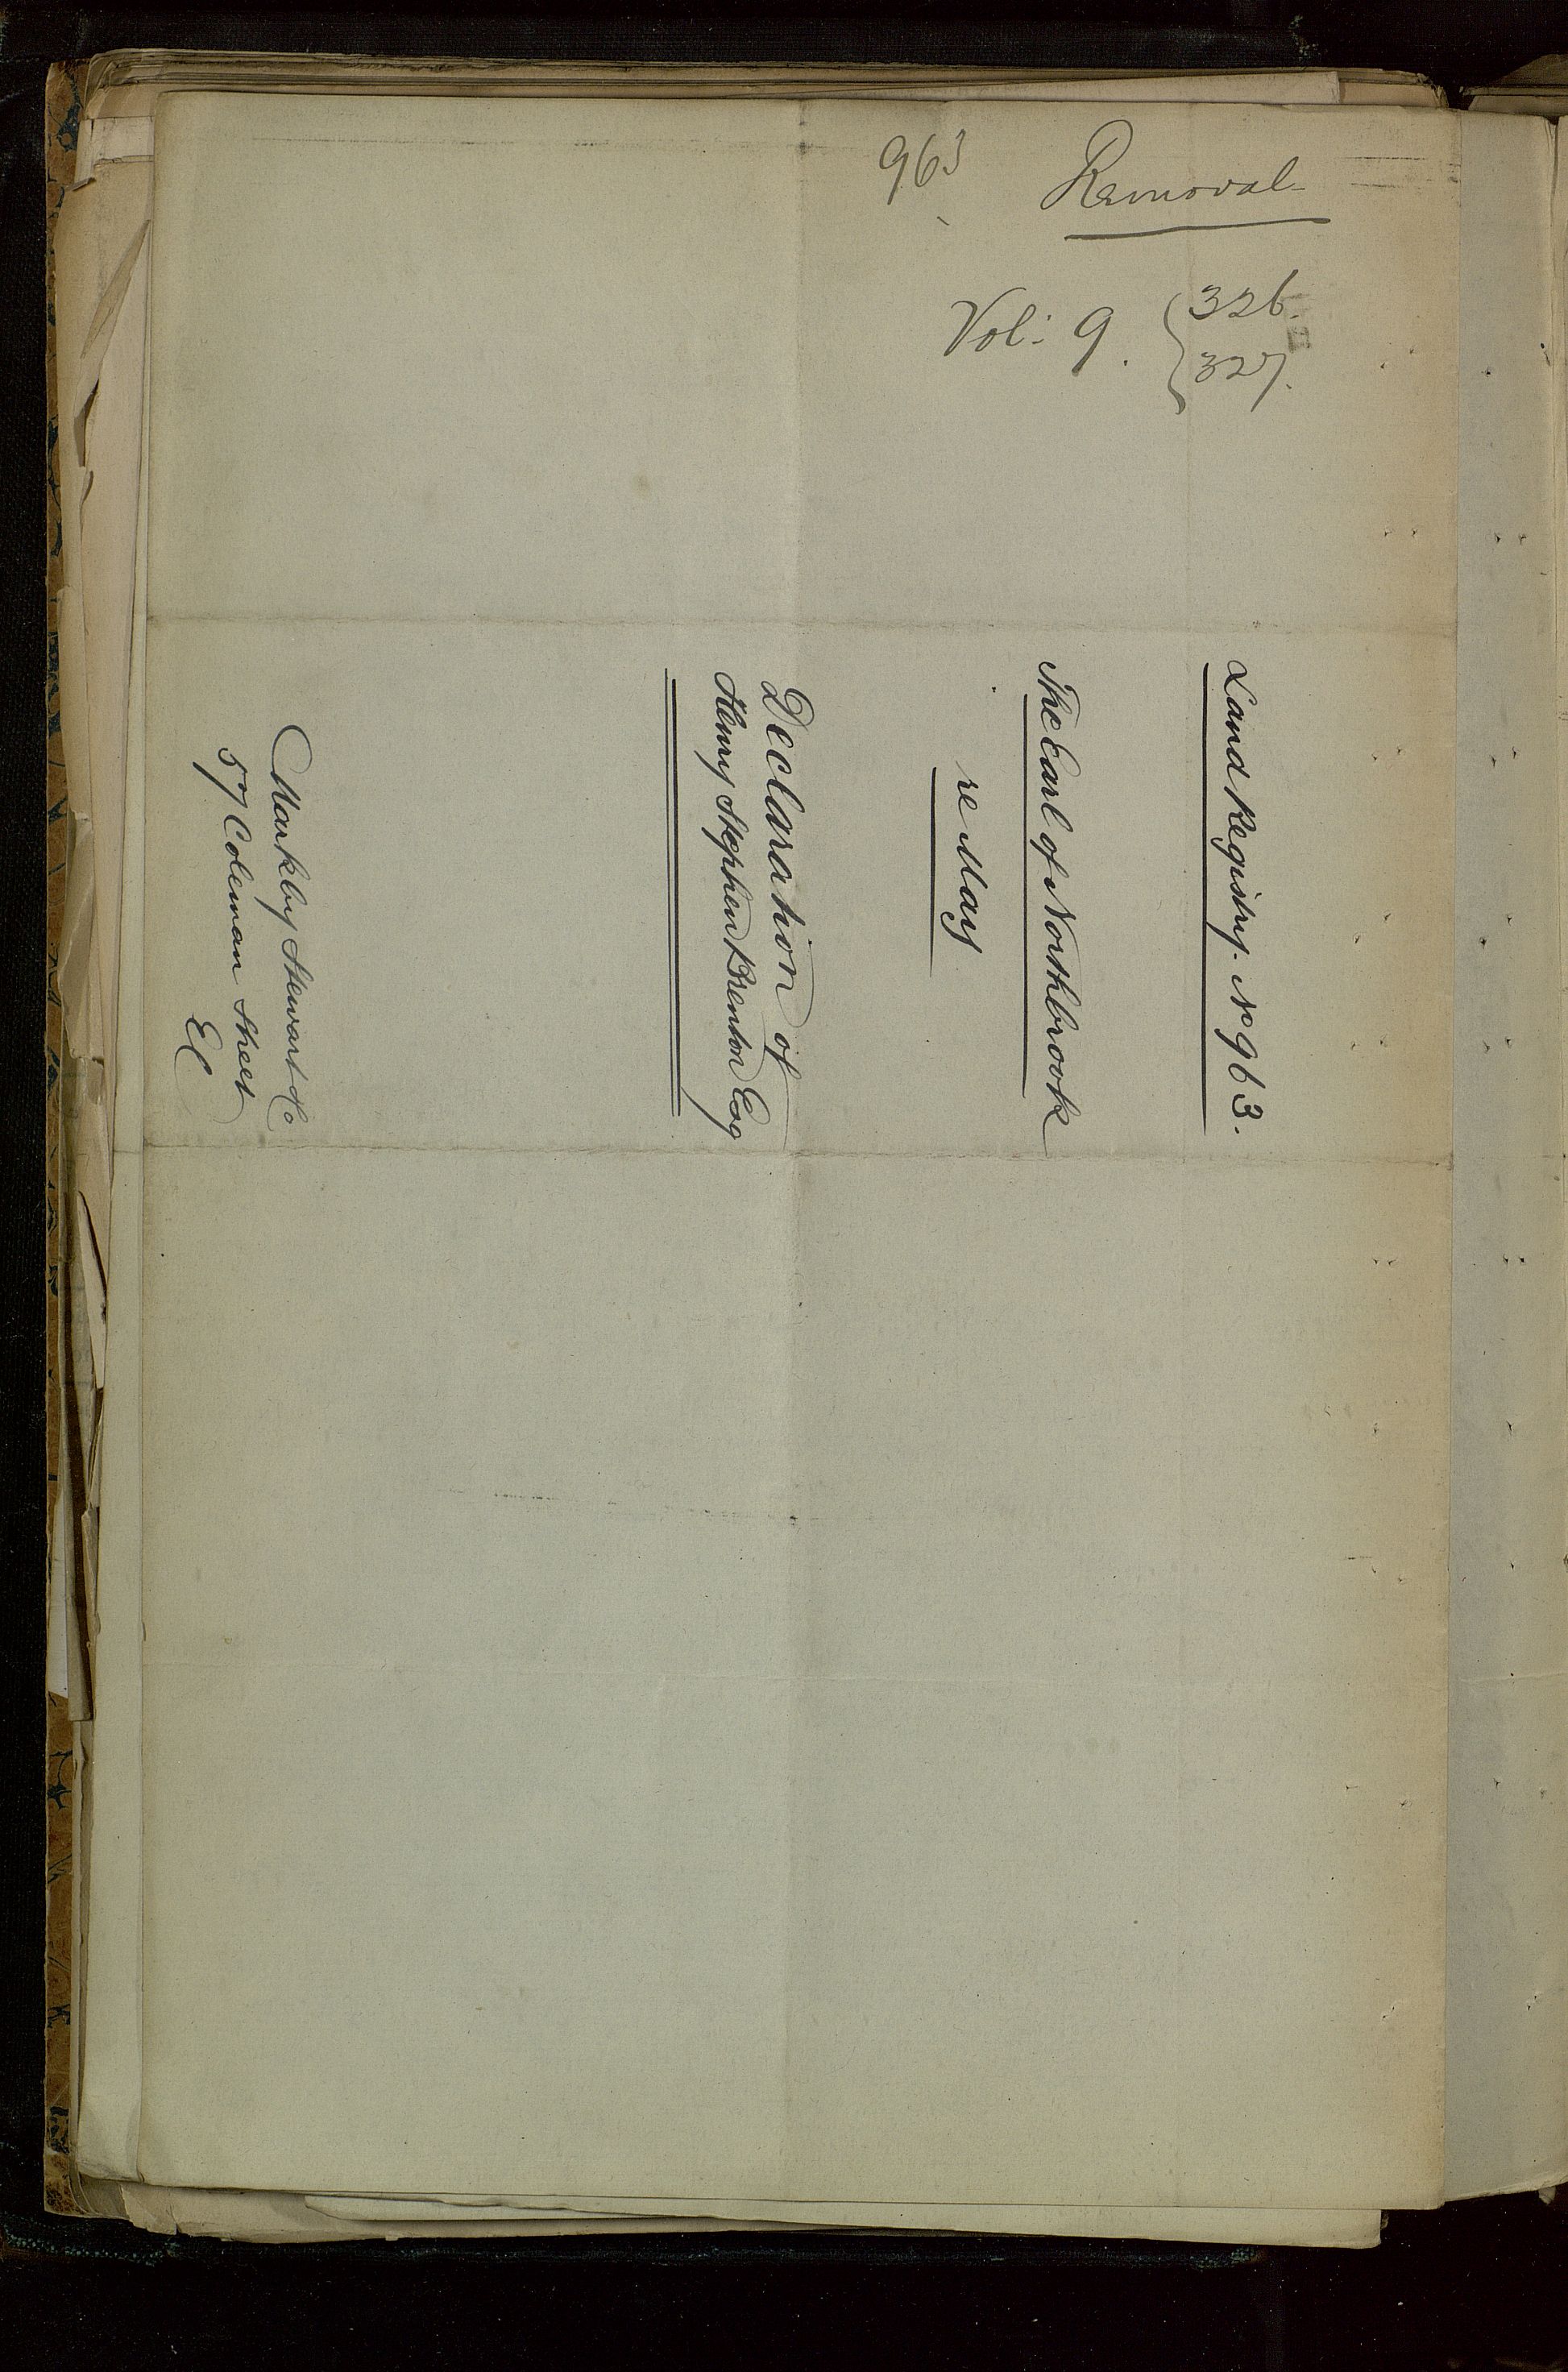 963
Removal
Vol: 9. { 326.
327.
Land Registry. No 963.
The Earl of Northbrook
re May
Declaration of
Henry Stephen Brenton Esq
Markby Stewart & Co
57 Coleman Street
EC